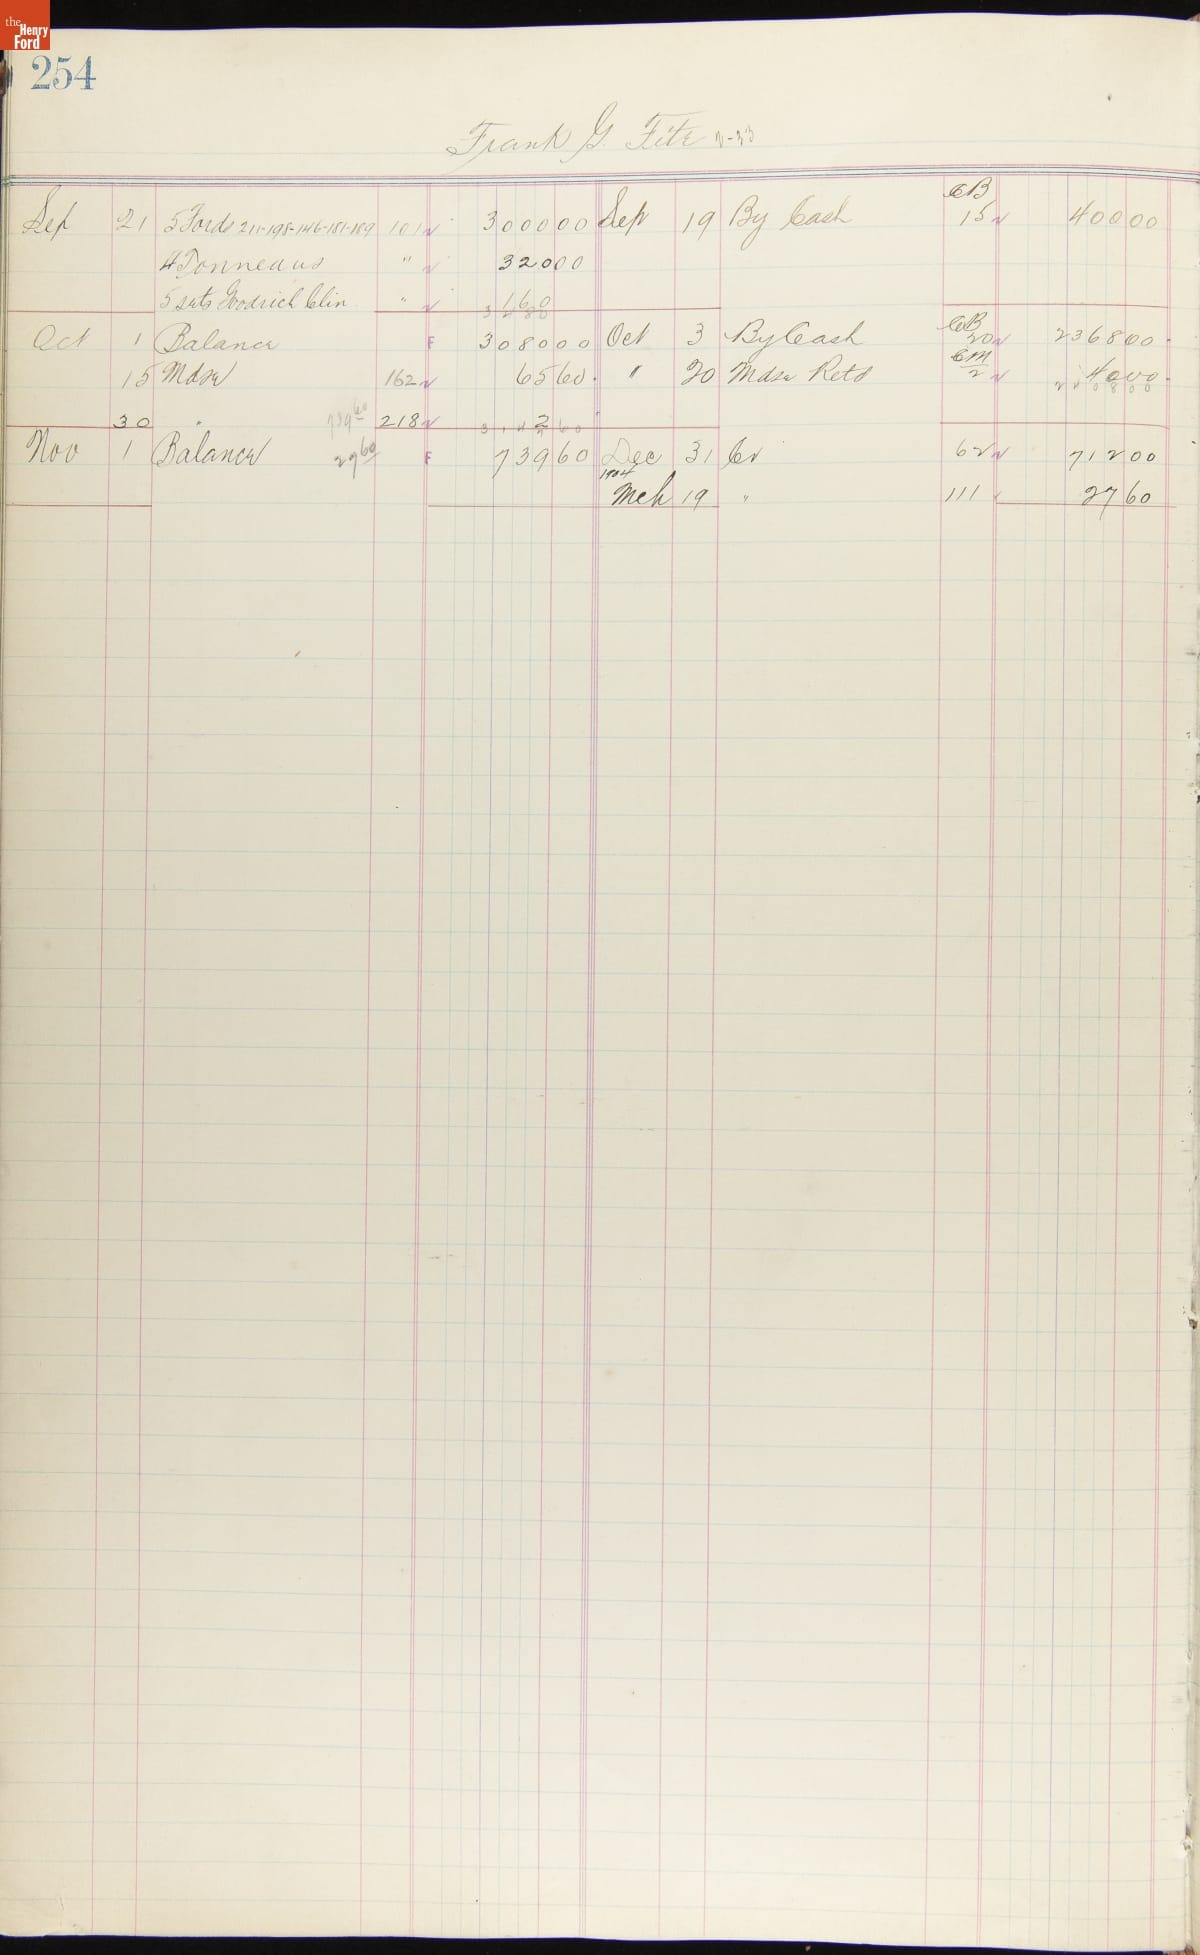 the Henry Ford
254
Frank G. Fitz
Sep 21 5 Fords 211-198-146-181-189 101 3000 00 Sep 19 By Cash CB 15 400 00
4 Tonneaus " 320 00
5 sets Goodrich Clin " 160
Oct 1 Balance F 3080 00 Oct 3 By Cash CB 20 2368 00
15 Mdse 162 65 60 " 20 Mdse Retd CM 2 40 00
2408 00
30 " 739 60 218 2
Nov 1 Balance 27 60 F 739 60 Dec 31 Cr 62 712 00
1904 Mch 19 " 111 27 60